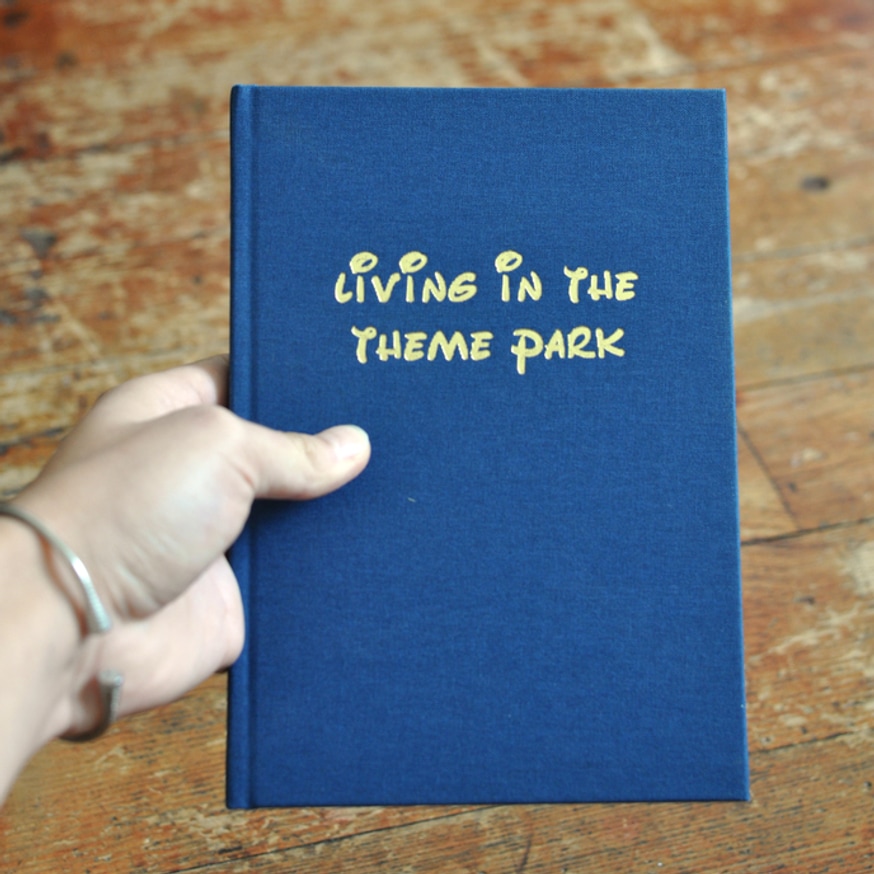 LIVING IN THE
THEME PARK